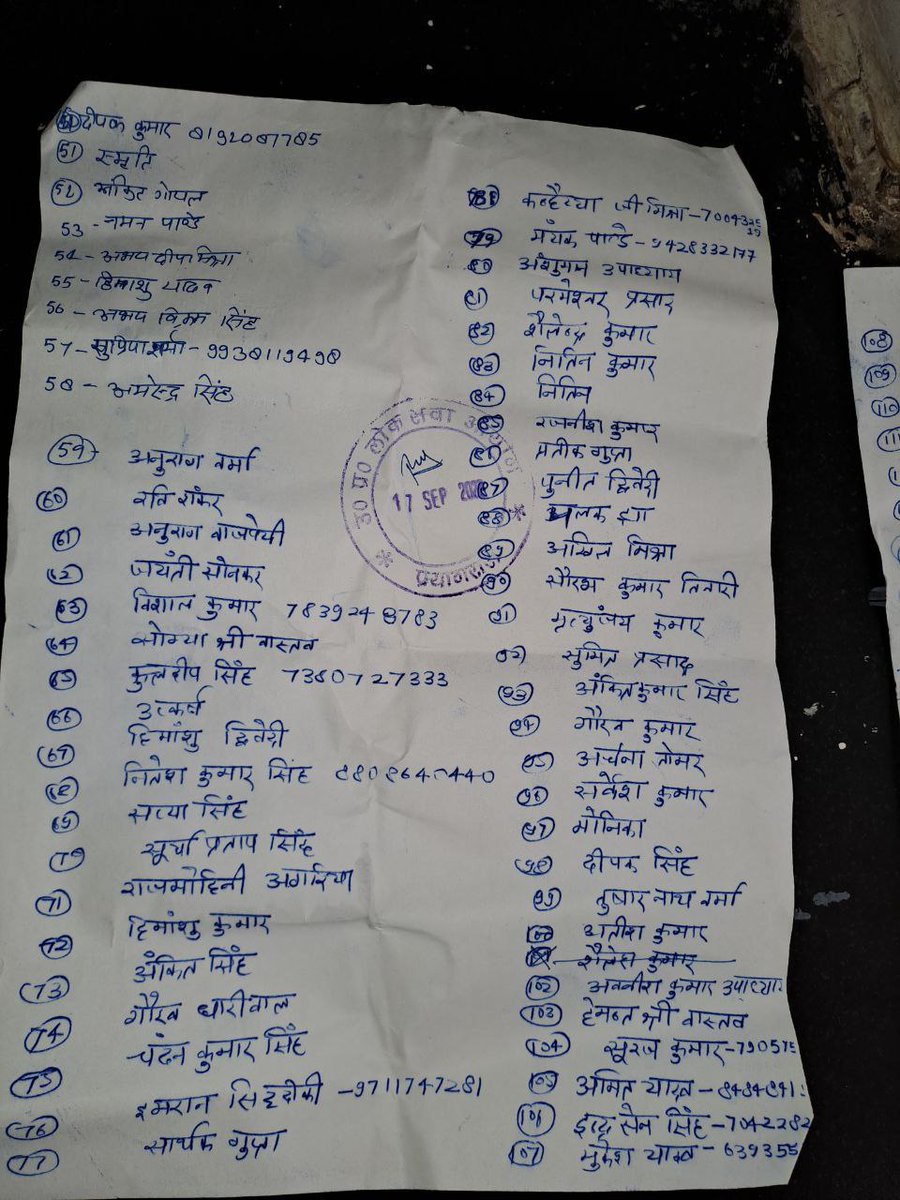 दीपक कुमार 8192087785
51 स्मृति
52 अंकित गोयल
53 - नमन पाण्डे
54 - अभय दीप मिश्रा
55 - हिमांशु यादव
56 - अभय विक्रम सिंह
57 - सुप्रिया शर्मा - 9938119498
58 - अमरेन्द्र सिंह
59 अनुराग वर्मा
60 रवि शंकर
61 अनुराग बाजपेयी
62 जयंती सोनकर
63 विशाल कुमार 7839248783
64 सोम्या श्री वास्तव
65 कुलदीप सिंह 7380727333
66 उत्कर्ष
67 हिमांशु द्विवेदी
68 नितेश कुमार सिंह 8808640440
69 सत्या सिंह
70 सूर्या प्रताप सिंह
71 राजमोहिनी अगरिया
72 हिमांशु कुमार
73 अंकित सिंह
74 गौरव धारीवाल
75 चंदन कुमार सिंह
76 इमरान सिद्दीकी - 9711747281
77 सार्थक गुप्ता
78 कन्हैय्या जी मिश्रा - 7004325
19
79 मयंक पाण्डे - 9428332177
80 अंशुगम उपाध्याय
81 परमेश्वर प्रसाद
82 शैलेन्द्र कुमार
83 नितिन कुमार
84 नितिन
85 रजनीश कुमार
86 प्रतीक गुप्ता
87 पुनीत द्विवेदी
88 पलक झा
89 अखिल मिश्रा
90 सौरभ कुमार तिवारी
91 मृत्युंजय कुमार
92 सुमित प्रसाद
93 अंकित कुमार सिंह
94 गौरव कुमार
95 अर्चना तोमर
96 सर्वेश कुमार
97 मोनिका
98 दीपक सिंह
99 तुषार नाथ वर्मा
100 अतीश कुमार
शैलेश कुमार
102 अवनीश कुमार उपाध्याय
103 हेमन्त श्री वास्तव
104 सूरज कुमार - 790575
105 अमित यादव - 8484841
106 इन्द्र सेन सिंह - 7042282
107 मुकेश यादव - 639355
उ० प्र० लोक सेवा आयोग
17 SEP
प्रयागराज
108
109
110